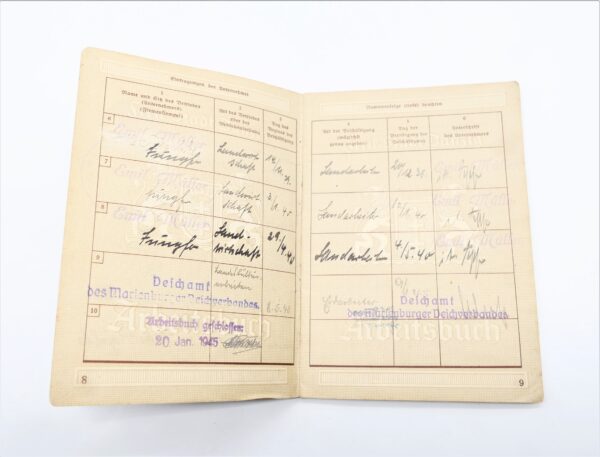 Eintragungen des Unternehmers
1
Name und Sitz des Betriebes
(Unternehmers)
(Firmenstempel)
2
Art des Betriebes
oder der
Betriebsabteilung
3
Tag des
Beginns der
Beschäftigung
6
Emil Müller
Jungfer
Landwirt
schaft
7
Emil Müller
Jungfer
Landwirt
schaft
2/1. 40
8
Emil Müller
Jungfer
Land-
wirtschaft
29/4. 40
9
Deichamt
des Marienburger Deichverbandes.
8.5.40
10
Arbeitsbuch geschlossen:
20 Jan. 1945
Arbeitsbuch
8
4
Art der Beschäftigung
(möglichst
genau angeben)
5
Tag der
Beendigung der
Beschäftigung
6
Unterschrift
des Unternehmers
Landarbeiter
Emil Müller
Landarbeiter
Emil Müller
Landarbeiter
4/5. 40
Erdarbeiter
Deichamt
des Marienburger Deichverbandes.
Arbeitsbuch
9